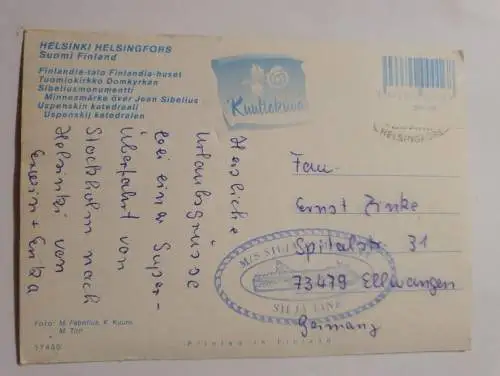 HELSINKI HELSINGFORS
Suomi Finland
Finlandia-talo Finlandia-huset
Tuomiokirkko Domkyrkan
Sibeliusmonumentti
Minnesmärke över Jean Sibelius
Uspenskin katedraali
Uspenskij katedralen
Herzliche
Urlaubsgrüsse
bei einer Super-
Überfahrt von
Stockholm nach
Helsinki von
Erwin +
Foto: M. Fabelius, K. Kuure,
17450
HELSINGFORS
Fam.
Ernst Zinke
Spitalstr. 31
73479 Ellwangen
Germany
M/S SILJA
SILJA LINE
Printed in Finland